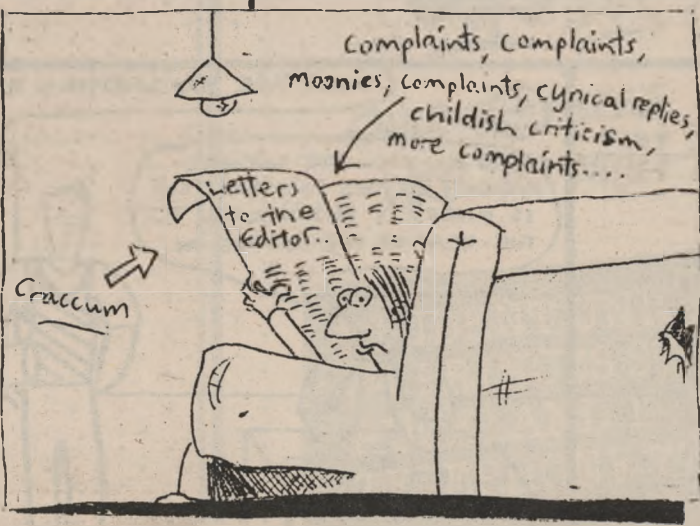 Complaints, complaints,
moonies, complaints, cynical replies,
childish criticism,
more complaints....
Letters
to the
Editor..
Craccum